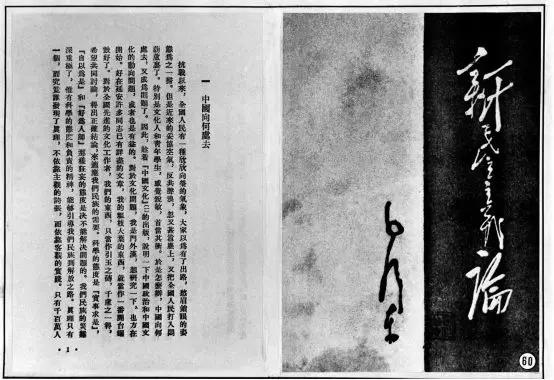 新民主主義論
毛澤東
一 中國向何處去
抗戰以來,全國人民有一種欣欣向榮的氣象,大家以爲有了出路,愁眉鎖眼的姿
態爲之一掃。但是近來的妥協空氣,反共聲浪,忽又甚囂塵上,又把全國人民打入悶
葫蘆裏了。特別是文化人和青年學生,感覺銳敏,首當其衝。於是怎麼辦,中國向何
處去,又成爲問題了。因此,趁着『中國文化』(一)的出版,說明一下中國政治和中國文
化的動向問題,或者也是有益的。對於文化問題,我是門外漢,想研究一下,也方在
開始。好在延安許多同志已有詳盡的文章,我的粗枝大葉的東西,就當作一番開台鑼
鼓好了。對於全國先進的文化工作者,我們的東西,只當作引玉之磚,千慮之一得,
希望共同討論,得出正確結論,來適應我們民族的需要。科學的態度是『實事求是』,
『自以爲是』和『好爲人師』那樣狂妄的態度是決不能解決問題的。我們民族的災難
深重極了,惟有科學的態度和負責的精神,能夠引導我們民族到解放之路。眞理只有
一個,而究竟誰發現了眞理,不依靠主觀的誇張,而依靠客觀的實踐。只有千百萬人
·1·
60